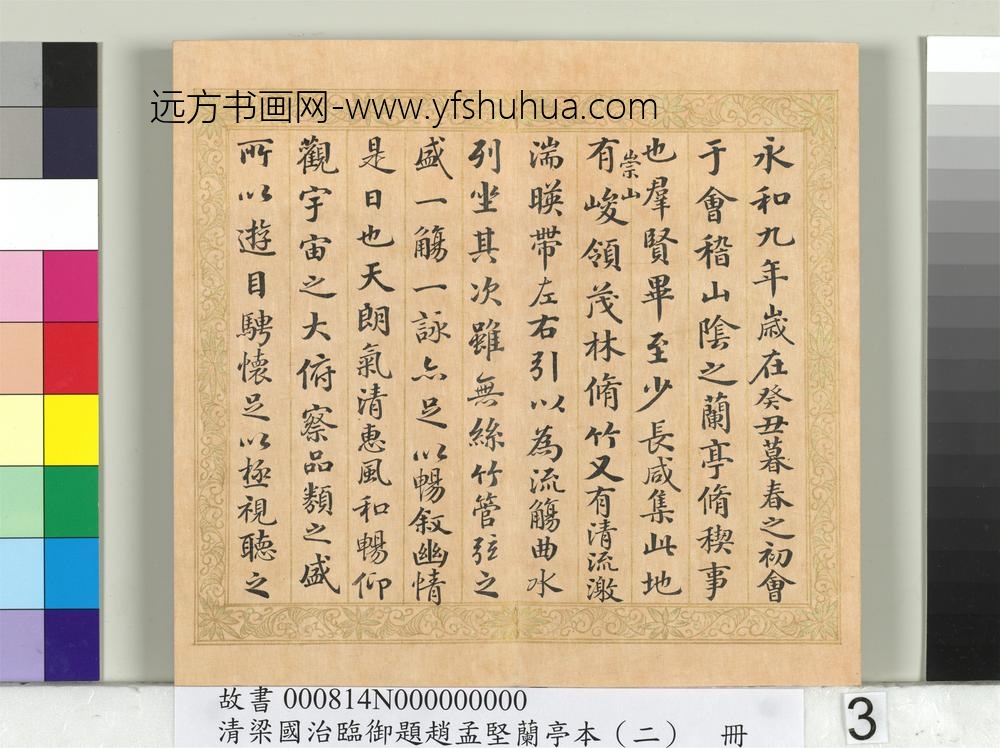 远方书画网-www.yfshuhua.com
永和九年歲在癸丑暮春之初會
于會稽山陰之蘭亭脩稧事
也羣賢畢至少長咸集此地
有崇山峻領茂林脩竹又有清流激
湍暎帶左右引以為流觴曲水
列坐其次雖無絲竹管弦之
盛一觴一詠亦足以暢叙幽情
是日也天朗氣清惠風和暢仰
觀宇宙之大俯察品類之盛
所以遊目騁懷足以極視聽之
故書 000814N000000000
清梁國治臨御題趙孟堅蘭亭本（二） 冊
3